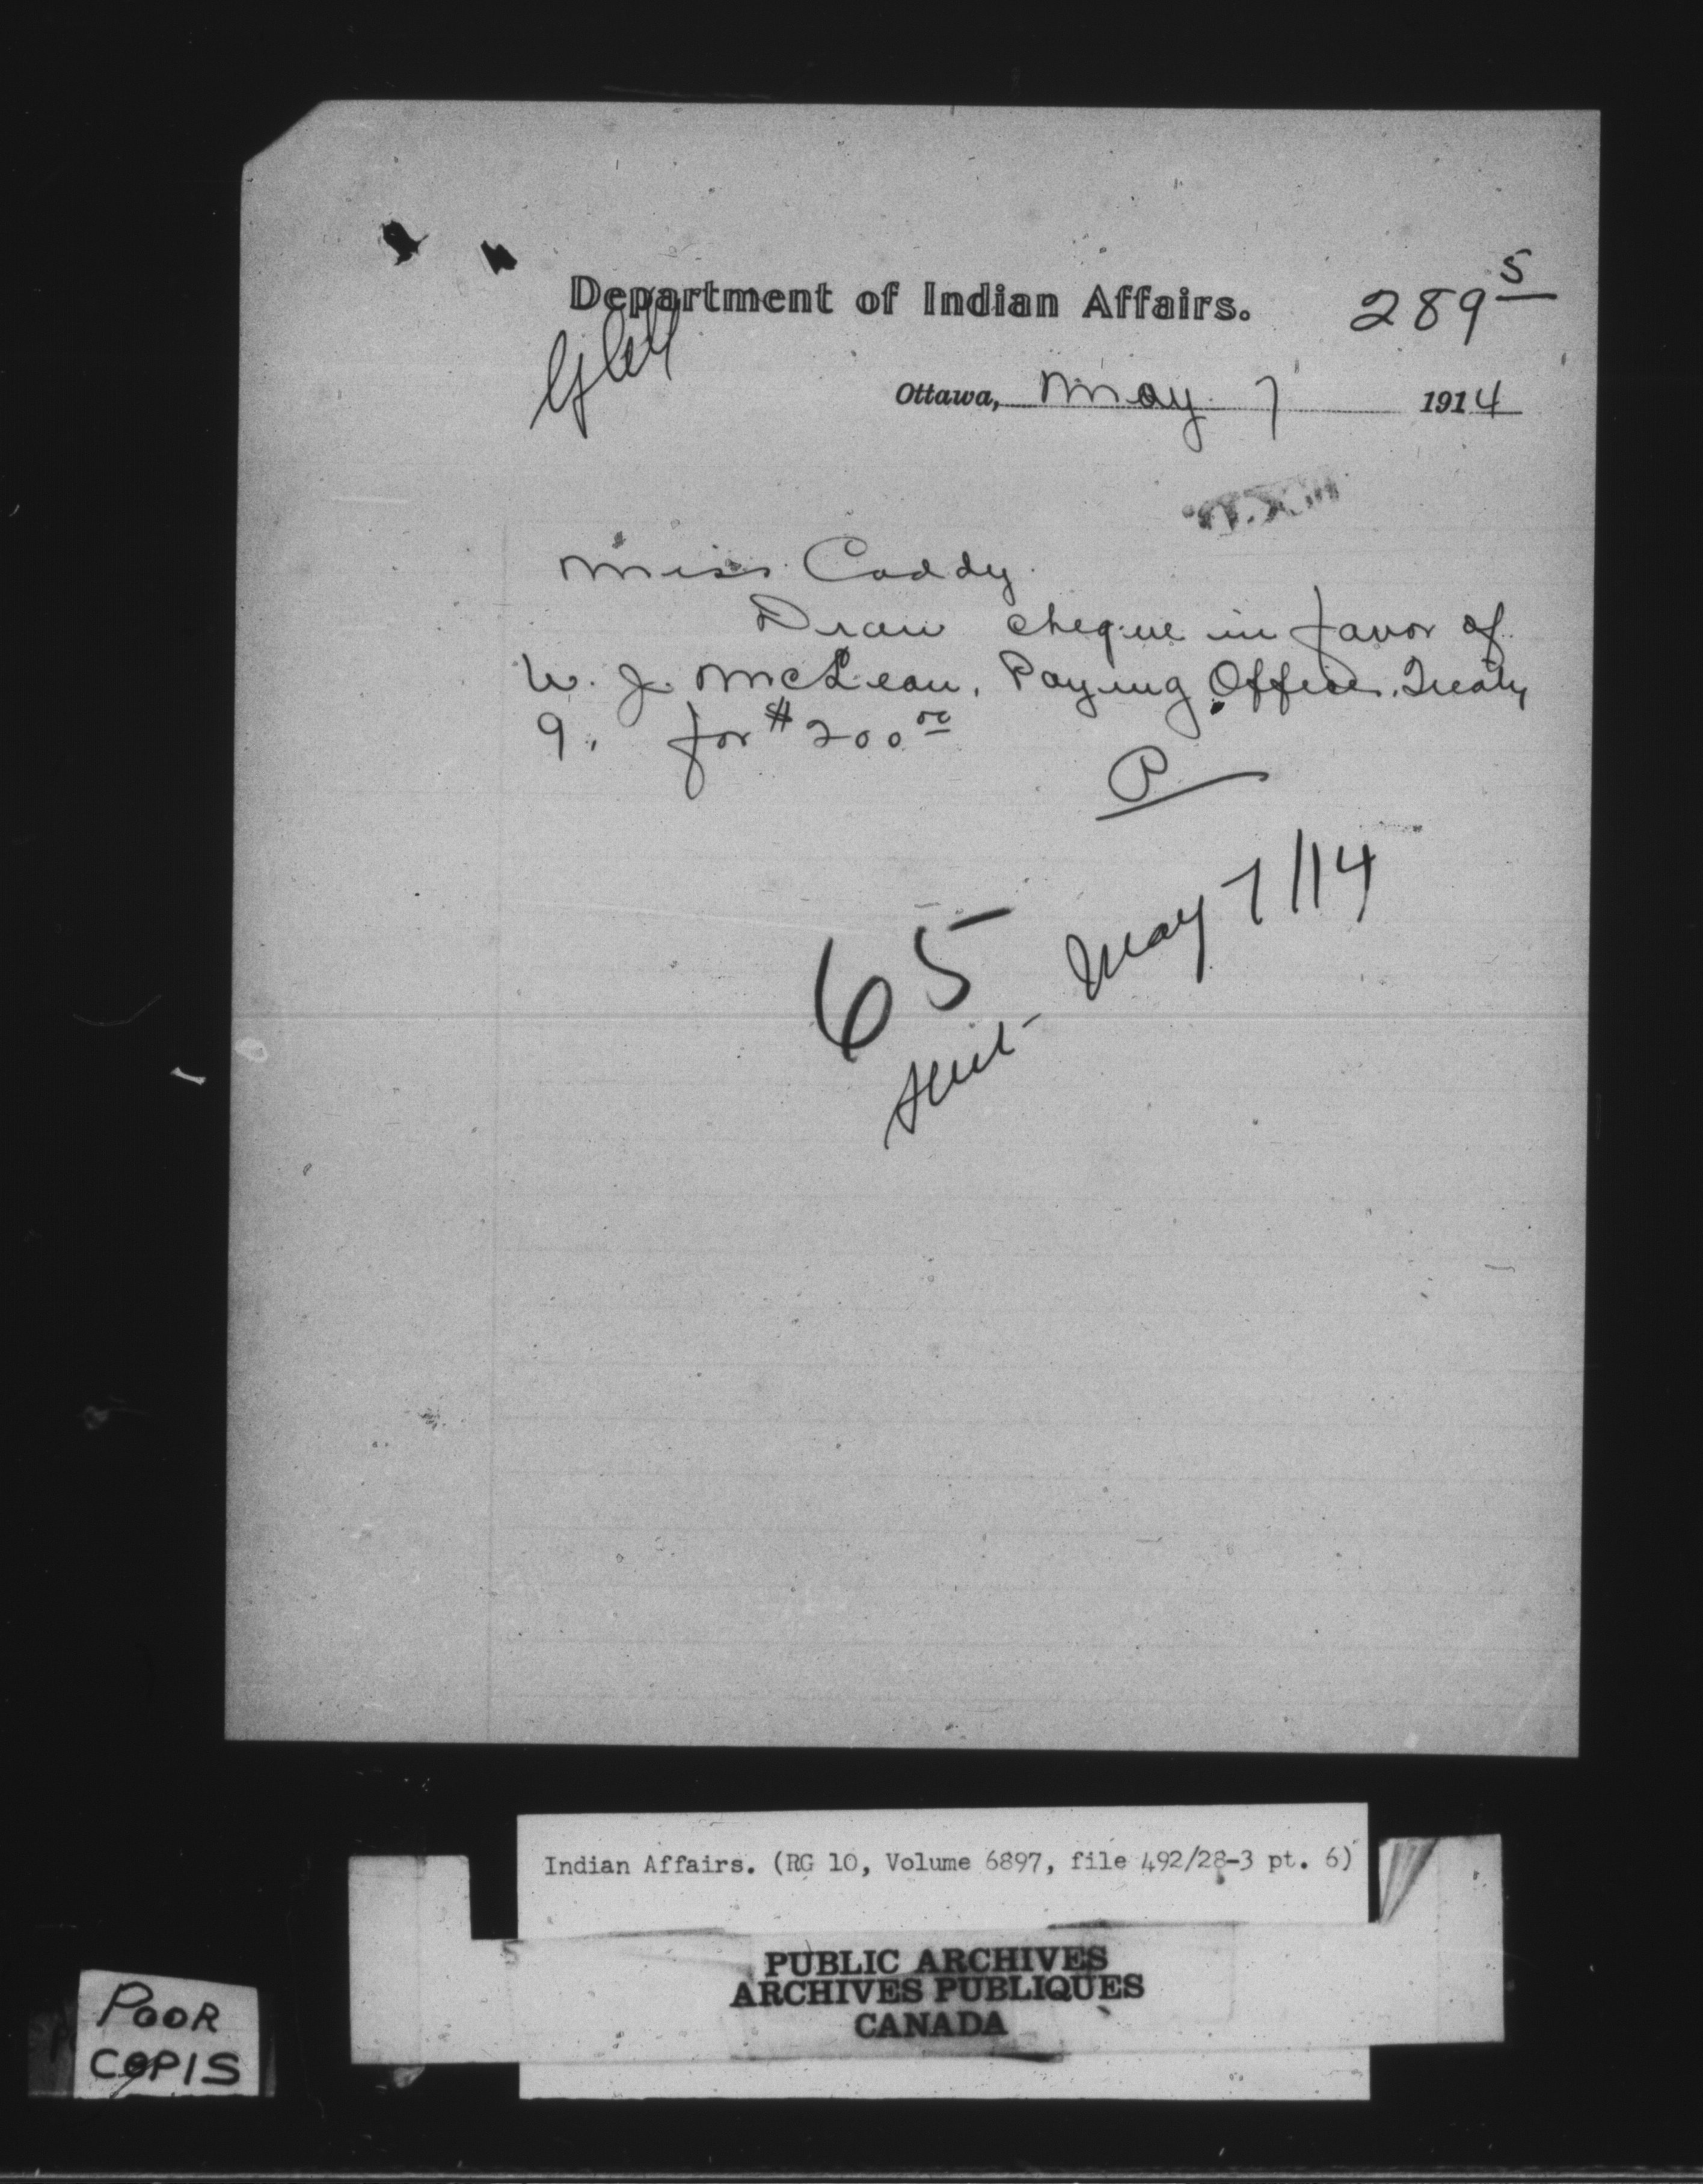 Department of Indian Affairs. 289 5
Ottawa, May 7 1914
Miss Caddy
Draw cheque in favor of
W. J. McLean, Paying Officer, Treaty
9, for $200 00
P
65
sent May 7/14
Indian Affairs. (RG 10, Volume 6897, file 492/28-3 pt. 6)
PUBLIC ARCHIVES
ARCHIVES PUBLIQUES
CANADA
POOR
COPIS